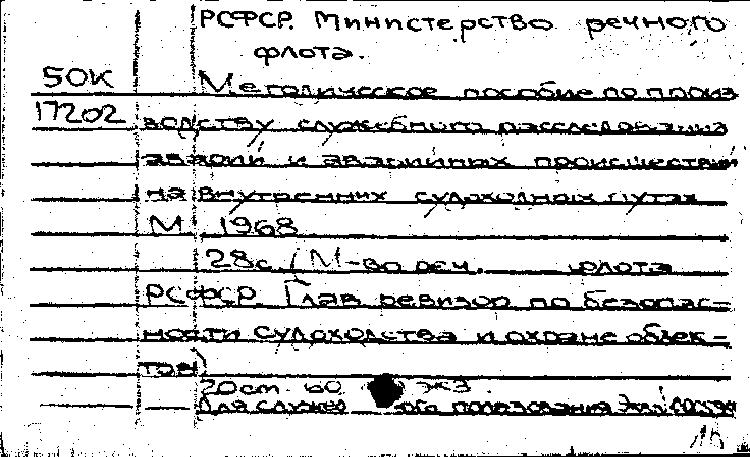 РСФСР. Министерство речного
флота.
50К
17202
Методическое пособие по произ
водству служебного расследования
аварий и аварийных происшествий
на внутренних судоходных путях
М 1968
28с. (М-во реч. флота
РСФСР Глав ревизор по безопас-
ности судоходства и охране объек-
тов)
20ст. 60 ЖЗ.
Для служеб ного пользования